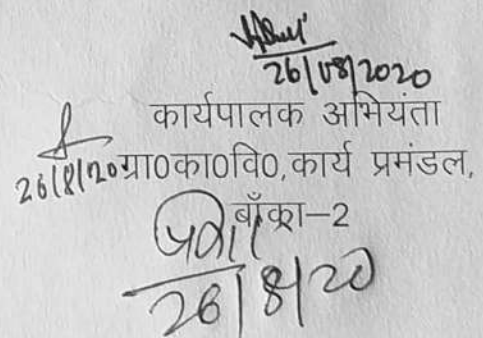 26/08/2020
कार्यपालक अभियंता
26/8/20 ग्रा0का0वि0,कार्य प्रमंडल,
बाँका-2
26/8/20